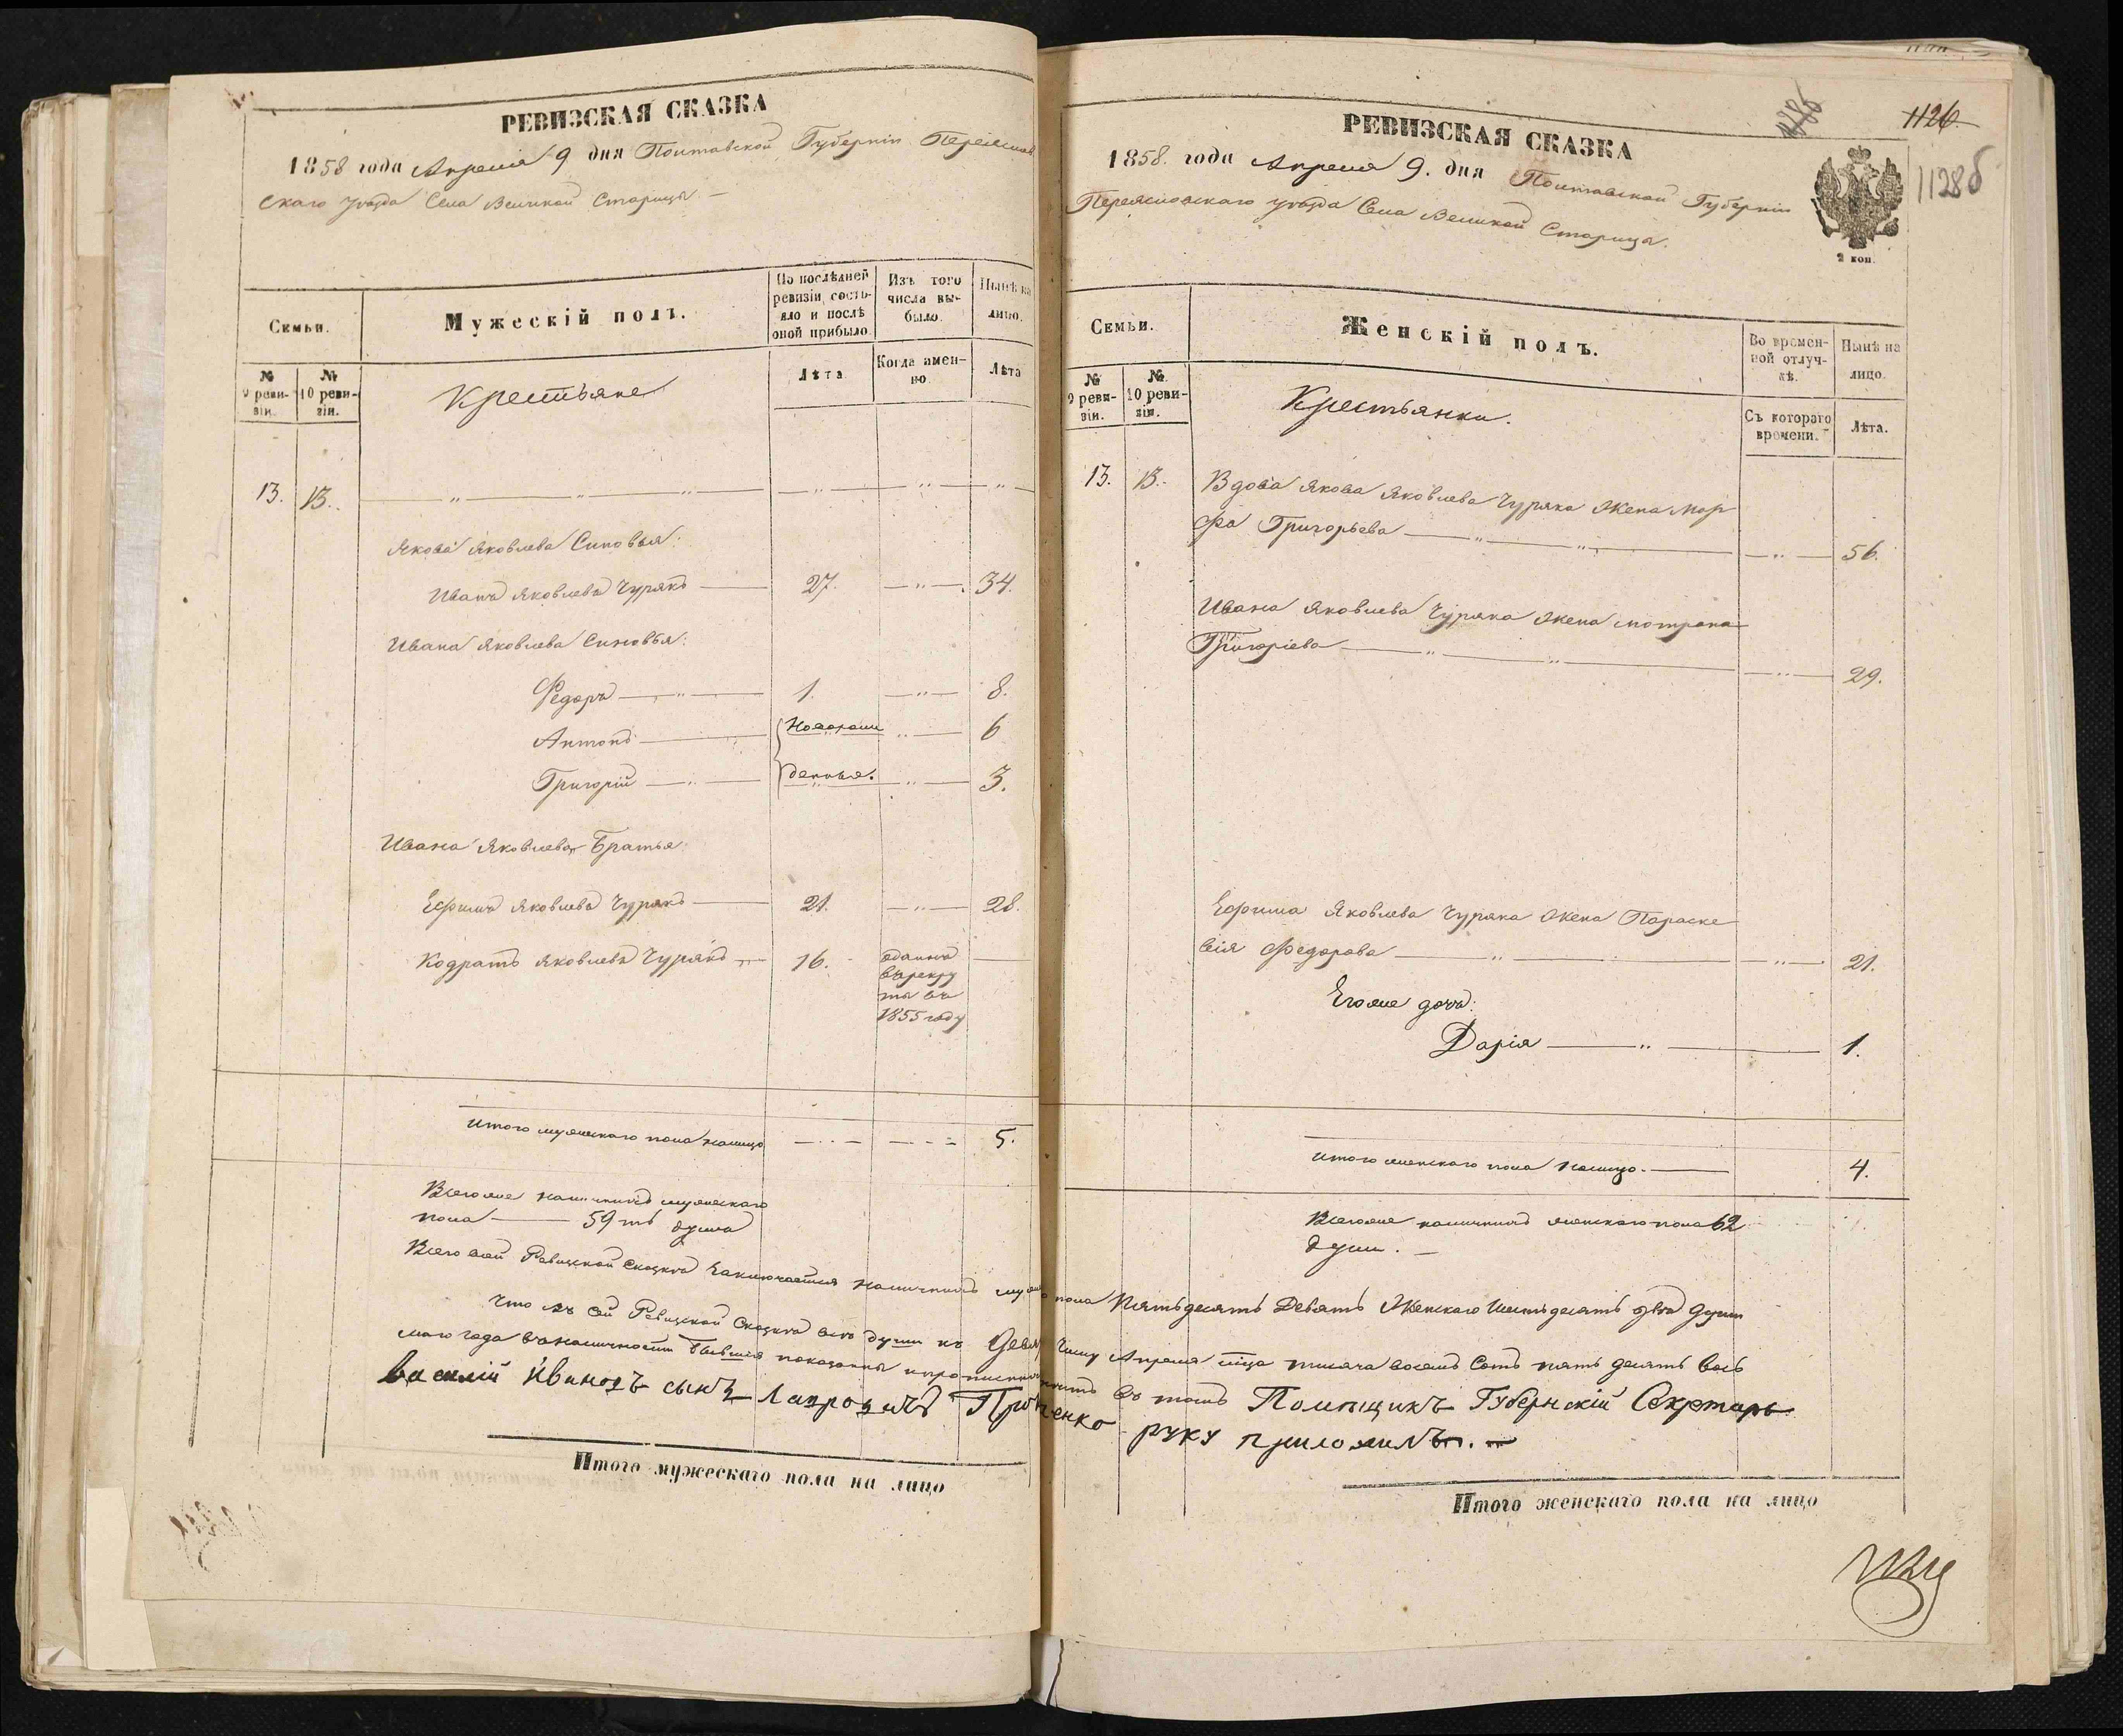 РЕВИЗСКАЯ СКАЗКА
1858 года Апреля 9 дня Полтавской Губерніи Переяслав
скаго уѣзда Села Великой Старицы —
Семьи.
Мужескій полъ.
По послѣдней ревизіи состояло и послѣ оной прибыло.
Изъ того числа выбыло.
Нынѣ на лицо.
№ 9 ревизіи.
№ 10 ревизіи.
Крестьяне
Лѣта
Когда именно.
Лѣта
13. 13.
Якова Яковлева Синовья:
Иванъ Яковлевъ Чурякъ 27. 34.
Ивана Яковлева Синовья:
Федоръ 1. 8.
Антонъ Новорож 6
Григорій денные. 3.
Ивана Яковлева Братья:
Ефимъ Яковлевъ Чурякъ 21. 28.
Кодратъ Яковлевъ Чурякъ 16. отданъ
въ рекру
ты въ
1855 году
Итого мужескаго пола налицо 5.
Всего же наличныхъ мужескаго
пола — 59 ть душъ
Итого мужескаго пола на лицо
РЕВИЗСКАЯ СКАЗКА
1126.
1128б
1858. года Апреля 9. дня Полтавской Губерніи
Переяславскаго уѣзда Села Великой Старицы.
2 коп.
Семьи.
Женскій полъ.
Во временной отлучкѣ.
Нынѣ на лицо.
№ 9 ревизіи.
№ 10 ревизіи.
Крестьянки.
Съ котораго времени.
Лѣта.
13. 13. Вдова Якова Яковлева Чуряка жена Мар
фа Григорьева 56.
Ивана Яковлева Чуряка жена Мотрона
Григоріева 29.
Ефима Яковлева Чуряка жена Параске
вія Федорова 21.
Его же дочь:
Дарія 1.
Итого женскаго пола налицо. 4.
Всего же наличныхъ женскаго пола 62
души.
Всего в сей Ревизской Сказкѣ заключается наличныхъ муж пола Пятьдесять Девять Женскаго Шестьдесятъ два души
Что въ сей Ревизской Сказкѣ всѣ души къ Девя Чису Апреля мца тысяча восемь Сотъ пять десятъ вось
маго года въ наличности бывшія показанны въ томъ Помѣщикъ Губернскій Секртарь
Василій Ивановъ сынъ руку приложилъ.
Итого женскаго пола на лицо